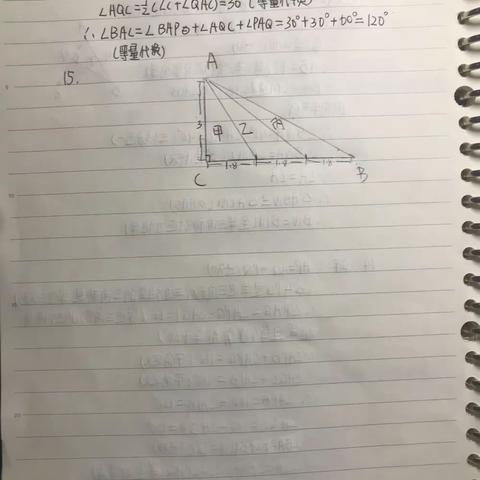 ∠AQC=½(∠C+∠QAC)=30°(等量代换)
∴∠BAC=∠BAP+∠QAC+∠PAQ=30°+30°+60°=120°
(等量代换)
15.
A
3
甲 乙 丙
C 1.8 1.8 1.8 B